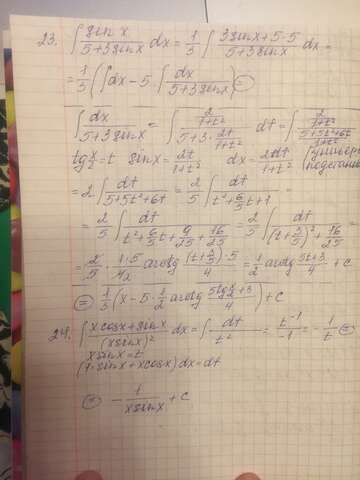 23. ∫ sin x / (5+3sinx) dx = 1/3 ∫ (3sinx+5-5) / (5+3sinx) dx =
= 1/3 (∫dx - 5·∫ dx / (5+3sinx)) ⊜
∫ dx / (5+3sinx) = ∫ (2/(1+t²)) / (5+3·2t/(1+t²)) dt = ∫ (2/(1+t²)) / ((5+5t²+6t)/(1+t²))
tg x/2 = t sinx = 2t/(1+t²) dx = 2dt/(1+t²)
= 2∫ dt / (5+5t²+6t) = 2/5 ∫ dt / (t²+6/5 t+1) =
= 2/5 ∫ dt / (t²+6/5 t+9/25+16/25) = 2/5 ∫ dt / ((t+3/5)²+16/25) =
= 2/5 · 1·5/4 arctg (t+3/5)·5/4 = 1/2 arctg (5t+3)/4 + c
⊜ 1/3 (x - 5·1/2 arctg (5tg x/2 + 3)/4) + c
24. ∫ (xcosx+sinx) / (xsinx)² dx = ∫ dt / t² = t⁻¹/-1 = -1/t ⊜
xsinx = t
(1·sinx + xcosx)dx = dt
⊜ - 1/(xsinx) + c